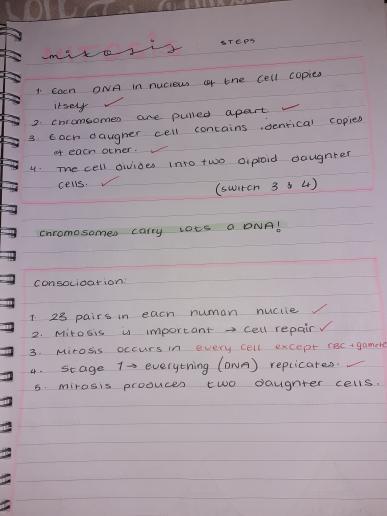 mitosis STEPS
1. Each DNA in nucleus of the cell copies
itself
2. chromsomes are pulled apart
3. Each daugher cell contains identical copies
of each other.
4. The cell divides into two diploid daughter
cells.
(switch 3 & 4)
chromosomes carry lots a DNA!
consolidation:
1. 23 pairs in each human nuclie
2. Mitosis is important → cell repair
3. Mitosis occurs in every cell except RBC + gamete
4. Stage 1 → everything (DNA) replicates.
5. mitosis produces two daughter cells.